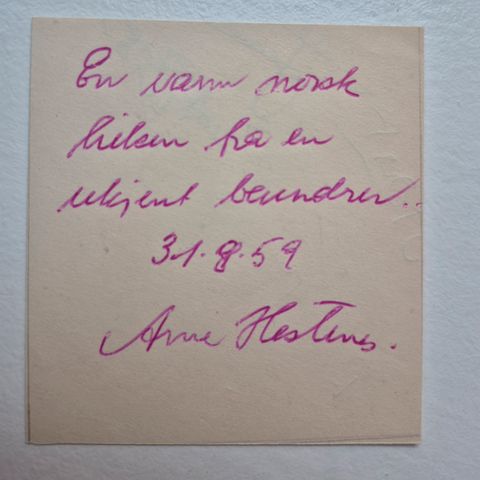 En varm norsk
hilsen fra en
ukjent beundrer..
31.8.59
Arne Hestenes.